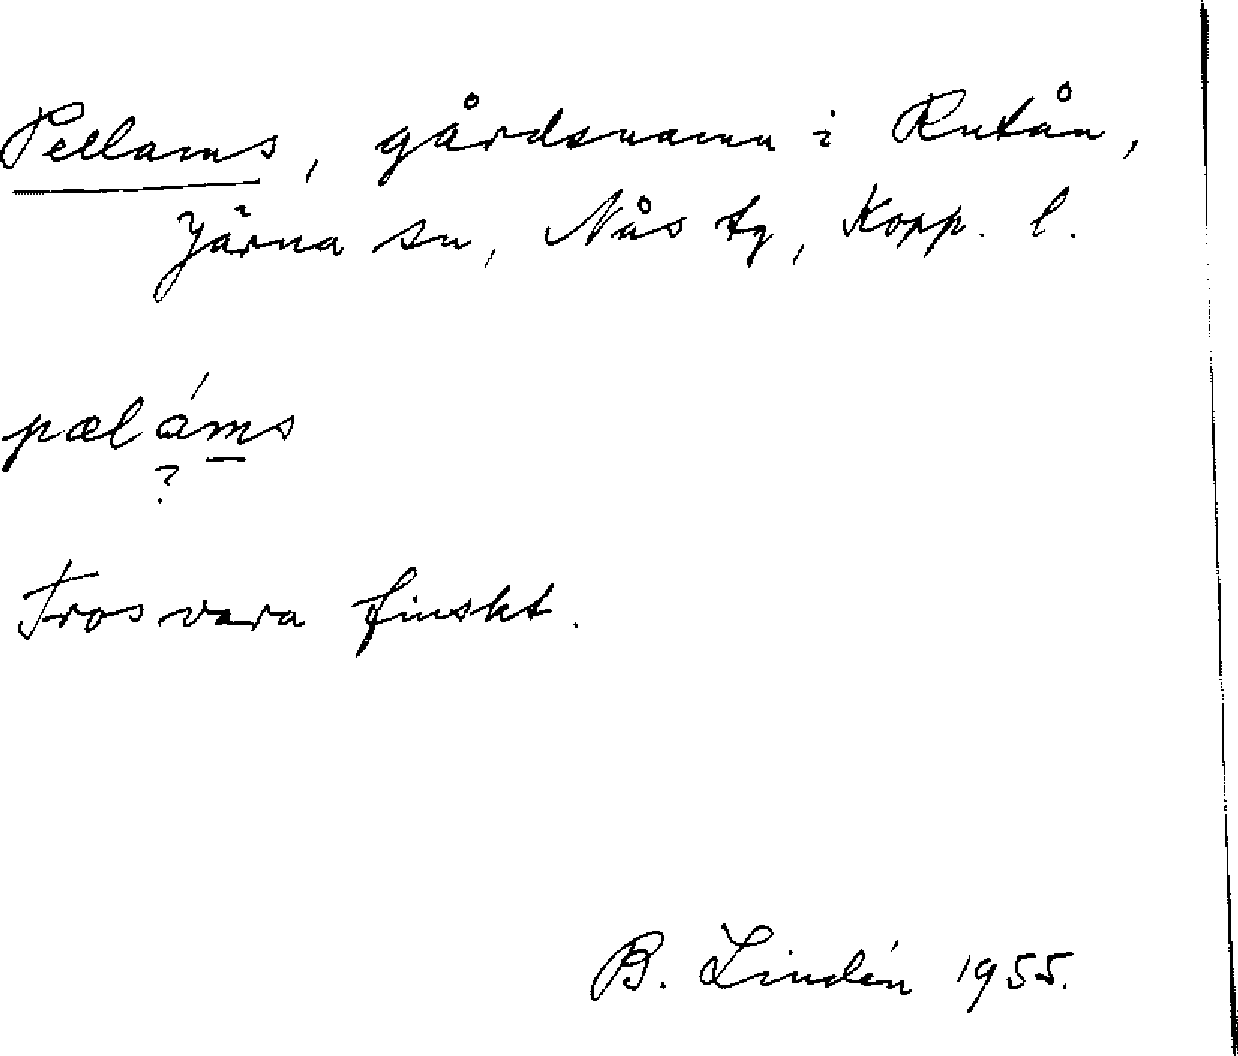 Pellams, gårdsnamn i Rutån,
Järna sn, Nås tg, Kopp. l.
pæláms
?
Tros vara finskt.
B. Lindén 1955.